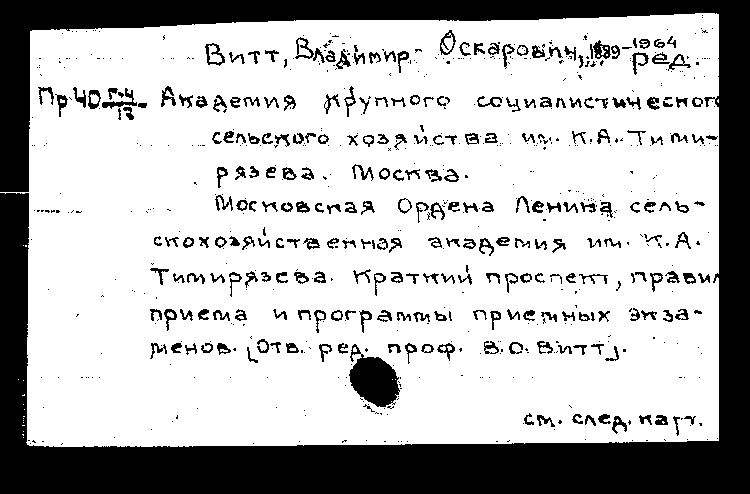 Витт, Владимир Оскарович, 1889-1964
ред.
Пр40 Г-4/13 Академия крупного социалистического
сельского хозяйства им. К.А. Тими-
рязева. Москва.
Московская Ордена Ленина сель-
скохозяйственная академия им. К.А.
Тимирязева. Краткий проспект, правил
приема и программы приемных экза-
менов. [Отв. ред. проф. В.О. Витт].
см. след. карт.